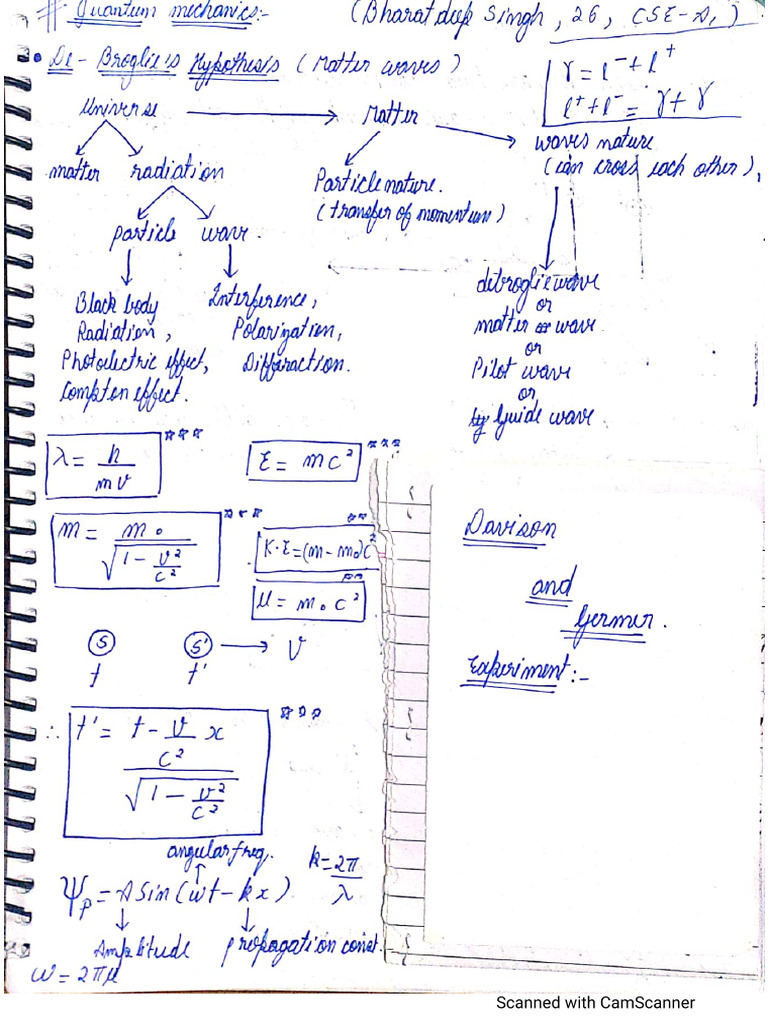 # Quantum mechanics:- (Bharatdeep Singh, 26, CSE-A1)
• De-Broglie's Hypothesis (Matter waves)
γ = e⁻ + e⁺
e⁺ + e⁻ = γ + γ
Universe → Matter
waves nature
(can cross each other),
matter radiation
Particle nature.
(transfer of momentum)
particle wave.
Black body
Radiation,
Photoelectric effect,
Compton effect.
Interference,
Polarization,
Diffraction.
debroglie wave
or
matter wave
or
Pilot wave
or
Guide wave.
λ = h/mv ***
E = mc² ***
m = m₀/√(1 - v²/c²) ***
K.E = (m - m₀)c² **
μ = m₀c² **
S S' → v
t t'
∴ t' = (t - v/c² x)/√(1 - v²/c²) ***
angular freq.
k = 2π/λ
Ψp = A Sin(ωt - kx)
Amplitude propagation const.
ω = 2πμ
Davison
and
Germer.
Experiment:-
Scanned with CamScanner